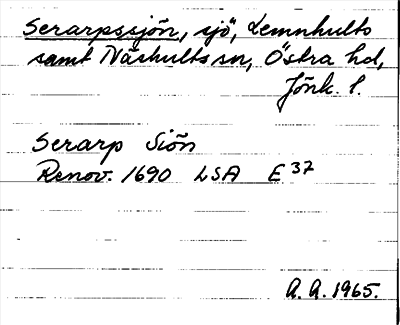 Serarpssjön, sjö, Lemnhults
samt Näshults sn, Östra hd,
Jönk. l.
Serarp Siön
Renov. 1690 LSA E 37
A. A. 1965.